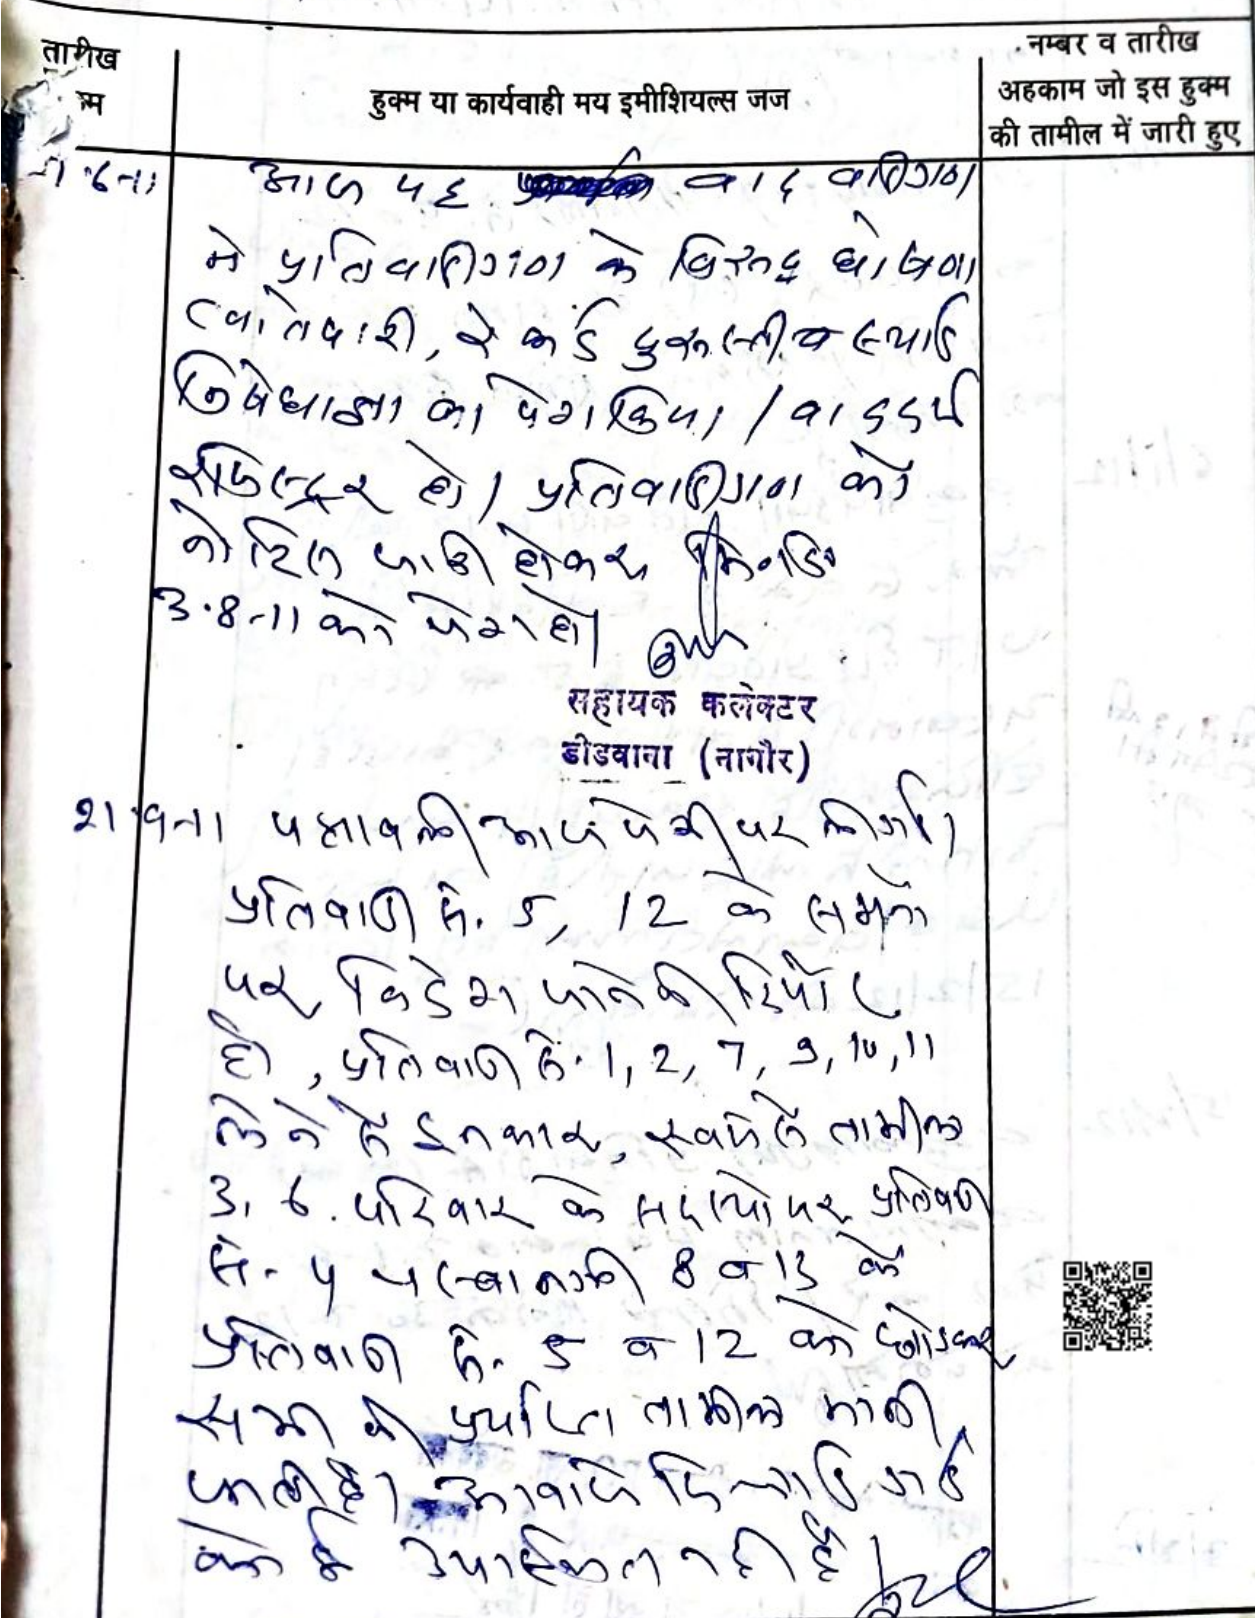 तारीख
हुक्म या कार्यवाही मय इमीशियल्स जज
नम्बर व तारीख
अहकाम जो इस हुक्म
की तामील में जारी हुए
आज यह वाद वादीगण
ने प्रतिवादीगण के विरुद्ध घोषणा
खातेदारी, रेकर्ड दुरूस्ती व स्थाई
निषेधाज्ञा का पेश किया। वाद दर्ज
रजिस्टर हो। प्रतिवादीगण को
नोटिस जारी होकर
3.8.11 को पेश हो।
सहायक कलेक्टर
डीडवाना (नागौर)
पत्रावली आज पेशी पर ली गई।
प्रतिवादी सं. 5, 12 के सम्मनो
पर विदेश जाने की रिपोर्ट
है, प्रतिवादी सं. 1, 2, 7, 9, 10, 11
लेने से इनकार, स्वयं से तामील
3, 6. परिवार के सदस्यो पर प्रतिवादी
सं. 4 चस्पानगी 8 व 13 के
प्रतिवादी सं. 5 व 12 को छोडकर
सभी की पर्याप्त तामील मानी
जाती है। आवाजे दिलाई गई
कोई उपस्थित नही है।